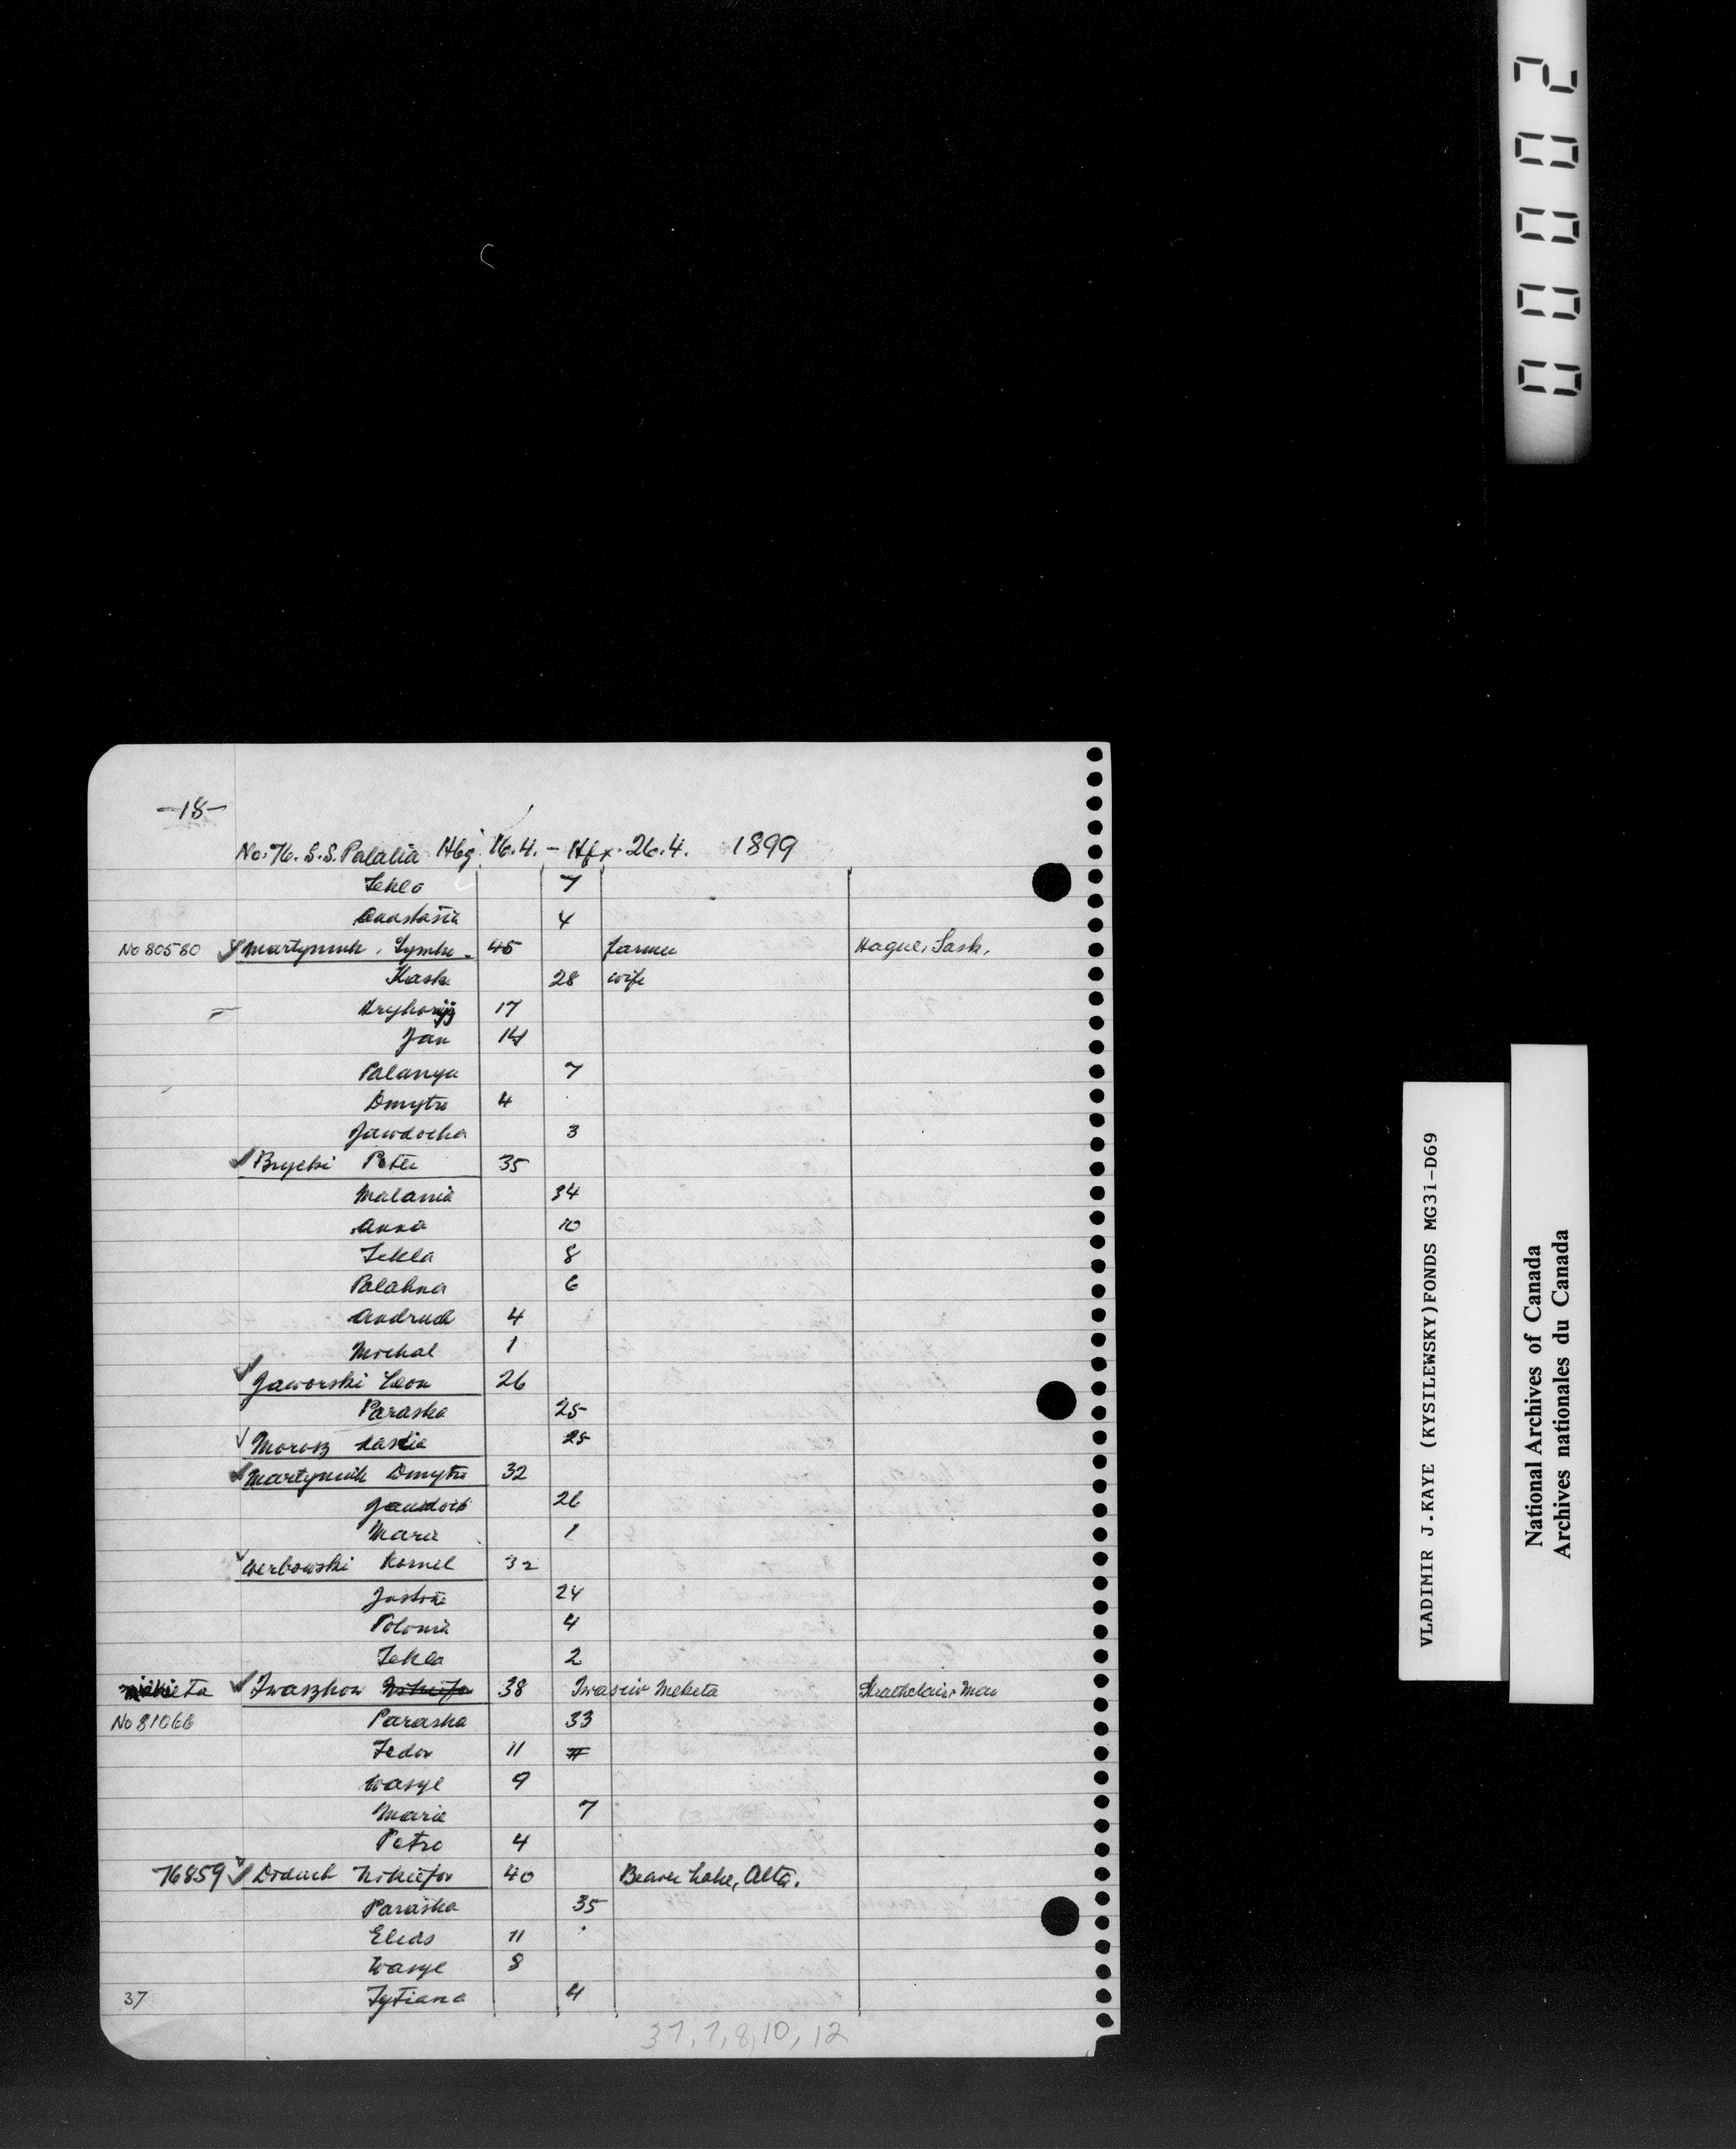 0 0 0 0 2
-18-
No. 76. S.S. Palatia Hbg. 16.4. - Hfx. 26.4. 1899
Tekla 7
Anastasia 4
No 80580 Martyniuk, Symko 45 farmer Hague, Sask.
Kaska 28 wife
Hryhorij 17
Jan 14
Palanya 7
Dmytro 4
Jawdocha 3
Brycki Peter 35
Malania 34
Anna 10
Tekla 8
Palahna 6
Andruch 4
Michal 1
Jaworski Leon 26
Paraska 25
Morosz 25
Martyniuk Dmytro 32
26
Maria 1
Werbowski Kornel 32
24
Polonia 4
Tekla 2
Mikieta Iwaszkow Nikiefor 38 Iwasiw Meketa Strathclair, Man
No 81066 Paraska 33
Fedor 11
Wasyl 9
Maria 7
Petro 4
76859 Diduch Nikiefor 40 Beaver Lake, Alta.
Paraska 35
Elias 11
Wasyl 8
37 Tytiana 4
37, 7, 8, 10, 12
VLADIMIR J.KAYE (KYSILEWSKY)FONDS MG31-D69
National Archives of Canada
Archives nationales du Canada